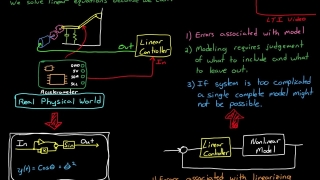 We solve linear equations because we can.
LTI Video
1) Errors associated with model
2) Modeling requires judgement
of what to include and what
to leave out.
3) If system is too complicated
a single complete model might
not be possible.
Out
Linear
Controller
In
GND
SDA
SCL
Accelerometer
Real Physical World
In
Out
Linear
Controller
Nonlinear
Model
1) Errors associated with linearizing